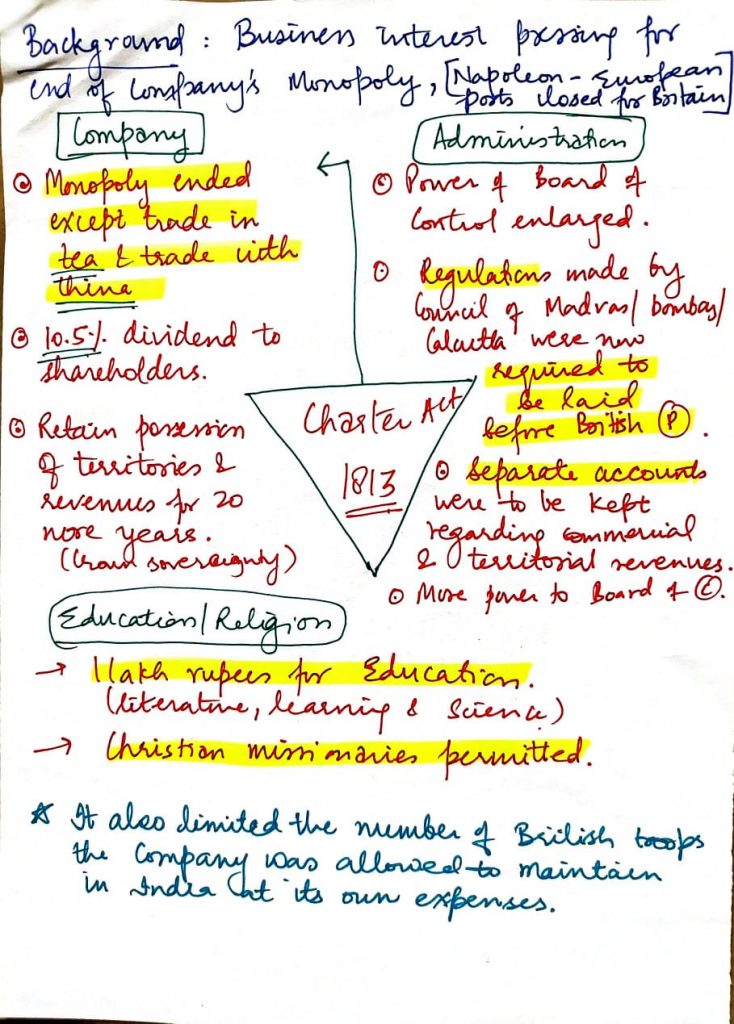 Background : Business interest pressing for
end of Company's Monopoly, [Napoleon - European
ports closed for Britain]
Company
⊙ Monopoly ended
except trade in
tea & trade with
China
⊙ 10.5% dividend to
shareholders.
⊙ Retain possession
of territories &
revenues for 20
more years.
(Crown sovereignty)
Administration
⊙ Power of Board of
Control enlarged.
⊙ Regulations made by
Council of Madras/bombay/
Calcutta were now
required to
be laid
before British Ⓟ.
⊙ Separate accounts
were to be kept
regarding commercial
& territorial revenues.
⊙ More power to Board of Ⓒ.
Charter Act
1813
Education/Religion
→ 1 lakh rupees for Education.
(literature, learning & Science)
→ Christian missionaries permitted.
☆ It also limited the number of British troops
the Company was allowed to maintain
in India at its own expenses.